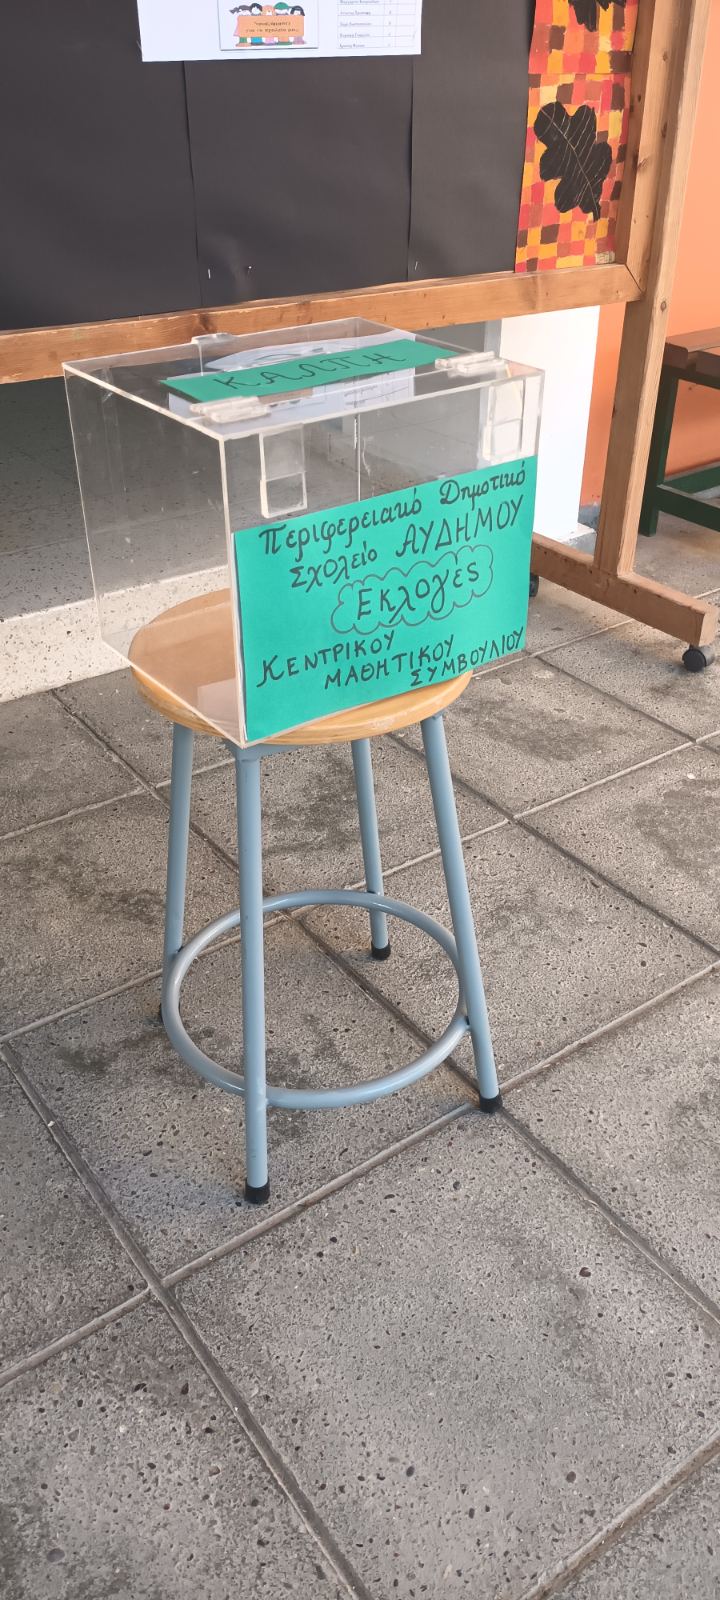 ΚΑΛΠΗ
Περιφερειακό Δημοτικό
Σχολείο ΑΥΔΗΜΟΥ
Εκλογές
ΚΕΝΤΡΙΚΟΥ
ΜΑΘΗΤΙΚΟΥ
ΣΥΜΒΟΥΛΙΟΥ